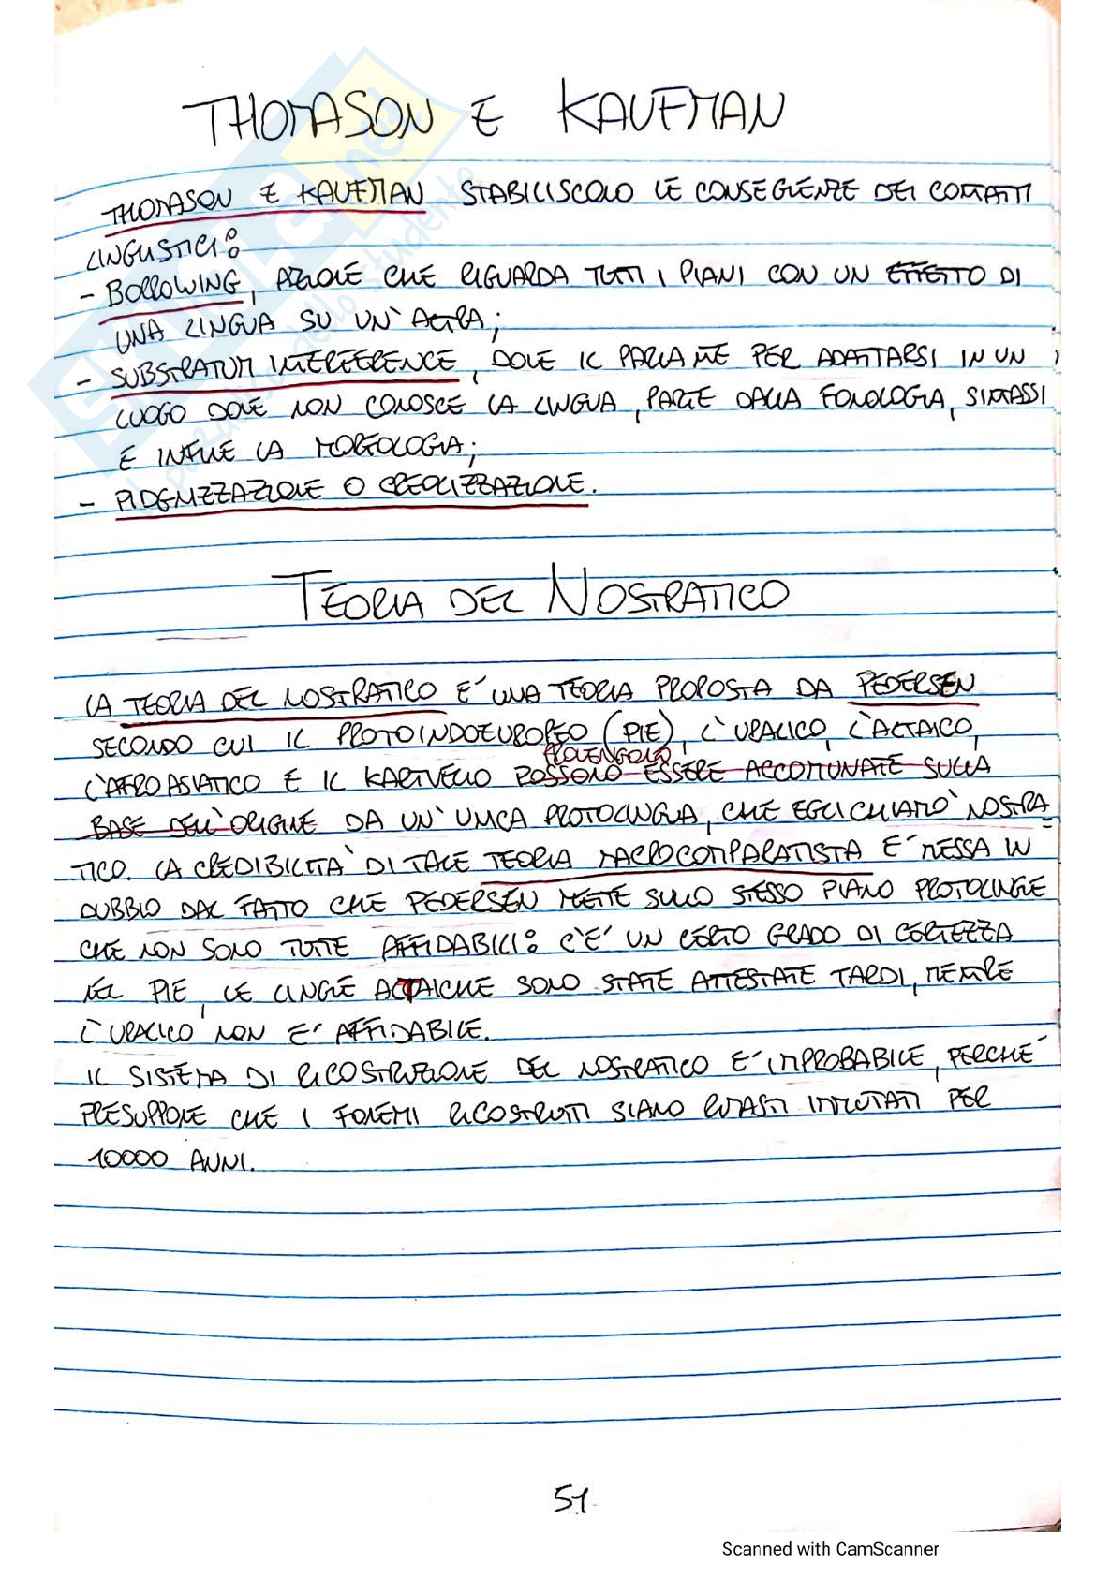 THOMASON E KAUFMAN
THOMASON E KAUFMAN STABILISCONO LE CONSEGUENZE DEI CONTATTI
LINGUISTICI:
- BORROWING, AZIONE CHE RIGUARDA TUTTI I PIANI CON UN EFFETTO DI
UNA LINGUA SU UN'ALTRA;
- SUBSTRATUM INTERFERENCE, DOVE IL PARLANTE PER ADATTARSI IN UN
LUOGO DOVE NON CONOSCE LA LINGUA, PARTE DALLA FONOLOGIA, SINTASSI
E INFINE LA MORFOLOGIA;
- PIDGINIZZAZIONE O CREOLIZZAZIONE.
TEORIA DEL NOSTRATICO
LA TEORIA DEL NOSTRATICO E' UNA TEORIA PROPOSTA DA PEDERSEN
SECONDO CUI IL PROTOINDOEUROPEO (PIE), L'URALICO, L'ALTAICO,
PROVENGONO
L'AFROASIATICO E IL KARTVELICO POSSONO ESSERE ACCOMUNATE SULLA
BASE DELL'ORIGINE DA UN'UNICA PROTOLINGUA, CHE EGLI CHIAMO' NOSTRA-
TICO. LA CREDIBILITA' DI TALE TEORIA MACROCOMPARATISTA E' MESSA IN
DUBBIO DAL FATTO CHE PEDERSEN METTE SULLO STESSO PIANO PROTOLINGUE
CHE NON SONO TUTTE AFFIDABILI: C'E' UN CERTO GRADO DI CERTEZZA
NEL PIE, LE LINGUE ALTAICHE SONO STATE ATTESTATE TARDI, MENTRE
L'URALICO NON E' AFFIDABILE.
IL SISTEMA DI RICOSTRUZIONE DEL NOSTRATICO E' IMPROBABILE, PERCHE'
PRESUPPONE CHE I FONEMI RICOSTRUITI SIANO RIMASTI IMMUTATI PER
10000 ANNI.
51
Scanned with CamScanner